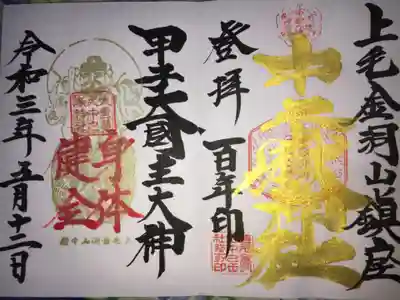 上毛金洞山鎮座
中之嶽神社
登拝 百年印
甲子大國主大神
身体
健全
令和三年五月十二日